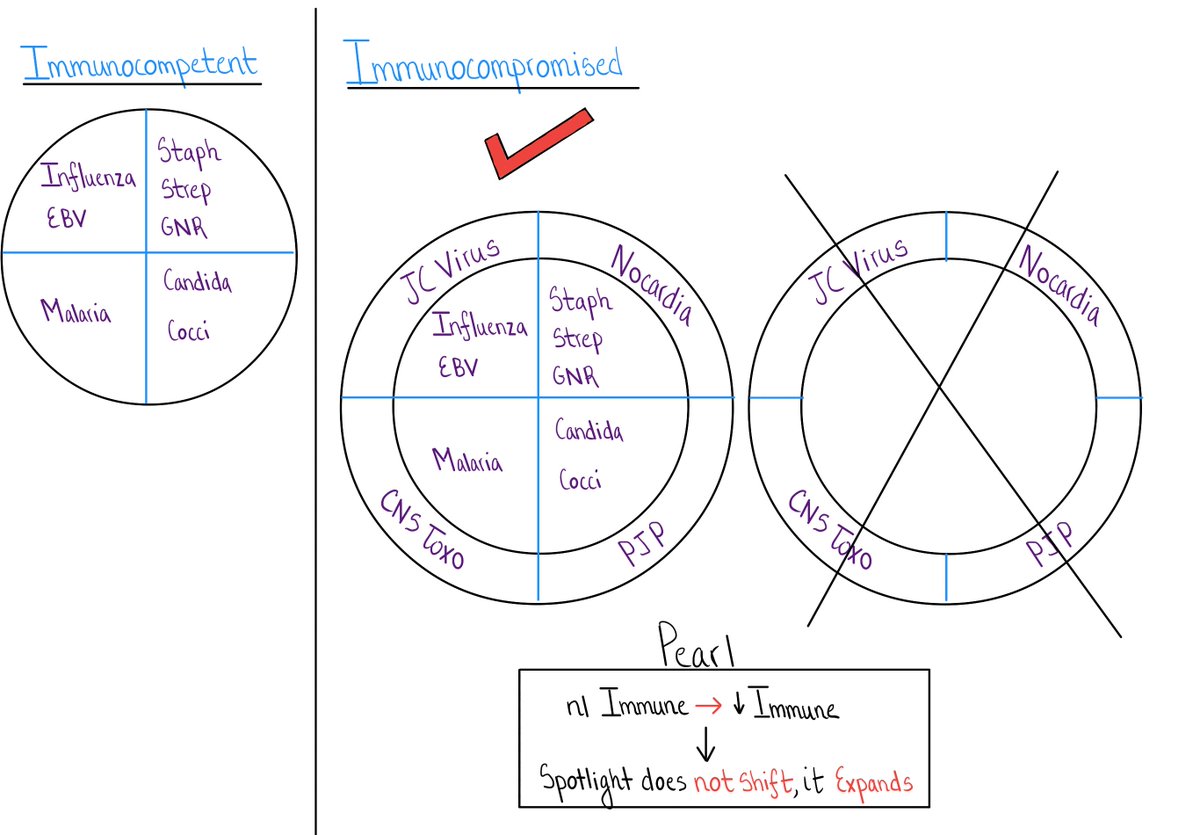 Immunocompetent
Influenza
EBV
Staph
Strep
GNR
Malaria
Candida
Cocci
Immunocompromised
JC Virus
Nocardia
Influenza
EBV
Staph
Strep
GNR
Malaria
Candida
Cocci
CNS Toxo
PJP
JC Virus
Nocardia
CNS Toxo
PJP
Pearl
nl Immune → ↓ Immune
↓
Spotlight does not shift, it Expands